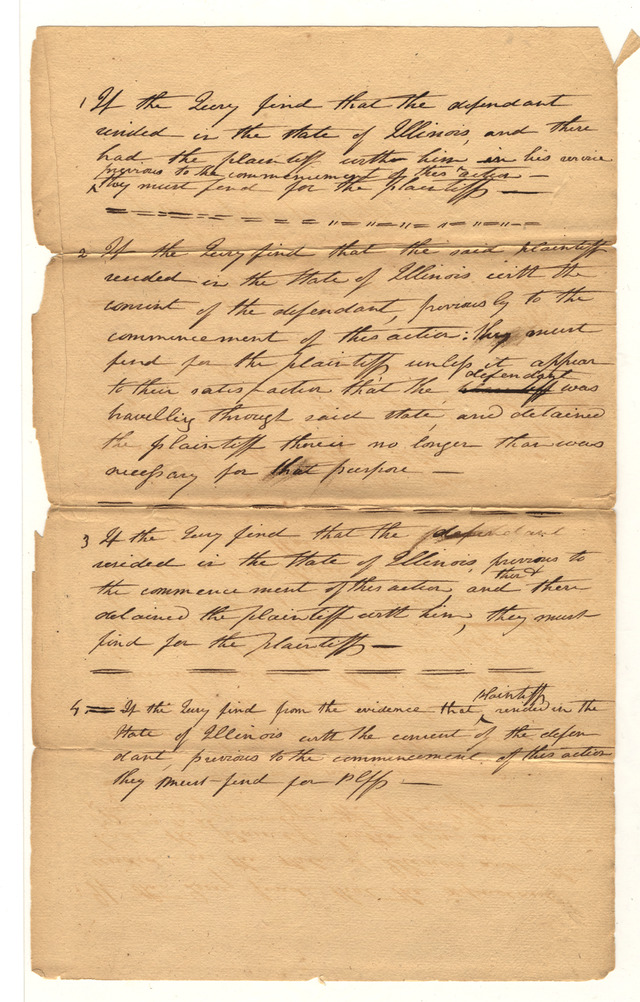 1 If the Jury find that the defendant
resided in the state of Illinois, and there
had the plaintiff with him in his service
previous to the commencement of this action –
^ they must find for the plaintiff —
2 If the Jury find that the said plaintiff
resided in the State of Illinois with the
consent of the defendant, previously to the
commencement of this action: they must
find for the plaintiff unless it appear
defendant
to their satisfaction that the plaintiff was
travelling through said state, and detained
the plaintiff therein no longer than was
necessary for that purpose —
3 If the Jury find that the defendant
resided in the State of Illinois, previous to
the commencement of this action, and there
detained the plaintiff with him, they must
find for the plaintiff —
plaintiff
4. If the Jury find from the evidence that ^ resided in the
State of Illinois with the consent of the defen
dant, previous to the commencement of this action
they must find for Plff —